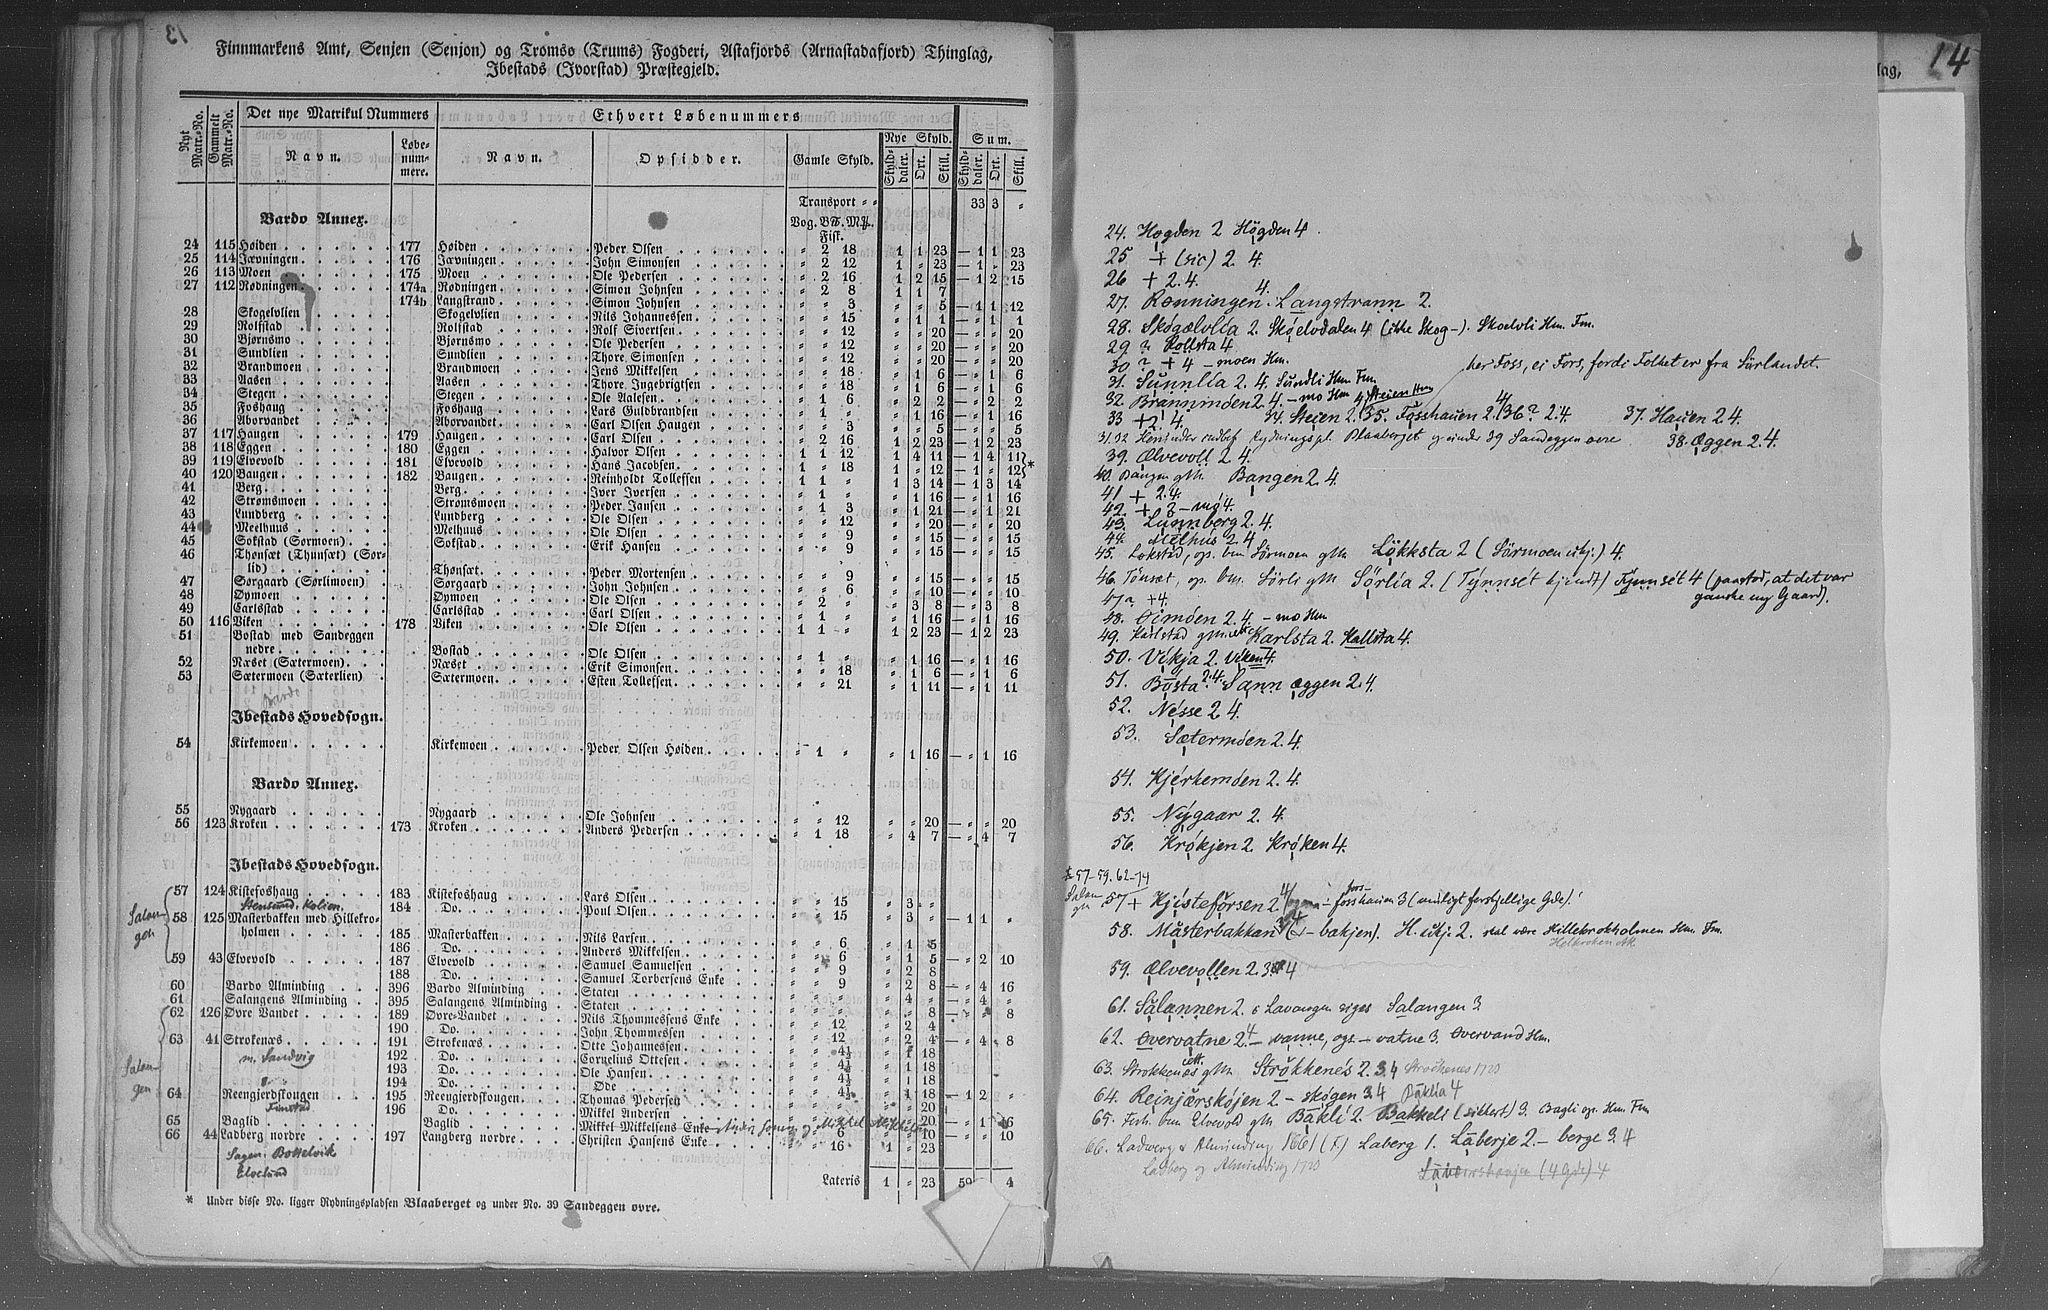 13
Finnmarkens Amt, Senjen (Senjon) og Tromsø (Trums) Fogderi, Astafjords (Arnastadafjord) Thinglag,
Ibestads (Ivorstad) Præstegjeld.
Nyt Matr.-No. Gammelt Matr.-No. Det nye Matrikul Nummers Ethvert Løbenummers
Navn. Løbenummere. Navn. Opsidder. Gamle Skyld. Nye Skyld. Sum.
Skylddaler. Ort. Skill. Skylddaler. Ort. Skill.
Transport 33 3 "
Bardo Annex. Vog. B℔. M℔.
Fisk.
24 115 Høiden 177 Høiden Peder Olsen " 2 18 1 1 23 — 1 1 23
25 114 Jævningen 176 Jævningen John Simonsen " 2 12 1 " 23 — 1 " 23
26 113 Moen 175 Moen Ole Pedersen " 2 16 1 2 15 — 1 2 15
27 112 Rødningen 174a Rødningen Simon Johnsen " 2 8 1 1 7
174b Langstrand Simon Johnsen " " 3 " " 5 — 1 1 12
28 Skogelvlien Skogelvlien Nils Johannessen " " 15 " 1 1 — " 1 1
29 Rolfstad Rolfstad Rolf Sivertsen " " 12 " " 20 — " " 20
30 Bjørnsmo Bjørnsmo Ole Pedersen " " 12 " " 20 — " " 20
31 Sundlien Sundlien Thore Simonsen " " 12 " " 20 — " " 20
32 Brandmoen Brandmoen Jens Mikkelsen " " 18 " 1 6 — " 1 6
33 Aasen Aasen Thore Ingebrigtsen " " 18 " 1 6 — " 1 6
34 Stegen Stegen Ole Aalesen " 1 6 " 2 2 — " 2 2
35 Foshaug Foshaug Lars Guldbrandsen " 1 " " 1 16 — " 1 16
36 Aborvandet Aborvandet Carl Olsen Haugen " " 3 " " 5 — " " 5
37 117 Haugen 179 Haugen Carl Olsen " 2 16 1 2 23 — 1 2 23
38 118 Eggen 180 Eggen Halvor Olsen 1 1 12 1 4 11 — 1 4 11
39 119 Elvevold 181 Elvevold Hans Jacobsen " " 18 1 " 12 — 1 " 12 *
40 120 Bangen 182 Bangen Reinholdt Tollefsen 1 1 " 1 3 14 — 1 3 14
41 Berg Berg Iver Iversen " 1 " " 1 16 — " 1 16
42 Strømsmoen Strømsmoen Peder Jansen " 1 3 " 1 21 — " 1 21
43 Lundberg Lundberg Ole Olsen " " 12 " " 20 — " " 20
44 Meelhuus Melhuus Ole Olsen " " 9 " " 15 — " " 15
45 Sokstad (Sormoen) Sokstad Erik Hansen " " 9 " " 15 — " " 15
46 Thonsæt (Thunsæt) (Sorlid)
Thonsæt Peder Mortensen " " 9 " " 15 — " " 15
47 Sorgaard (Sorlimoen) Sorgaard John Johnsen " " 6 " " 10 — " " 10
48 Øymoen Øymoen Ole Olsen " 2 " " 3 8 — " 3 8
49 Carlsstad Carlsstad Carl Olsen " 1 " " 1 16 — " 1 16
50 116 Viken 178 Viken Ole Olsen 1 1 " 1 2 23 — 1 2 23
51 Bostad med Sandeggen
nedre Bostad Ole Olsen " 1 " " 1 16 — " 1 16
52 Næset (Sætermoen) Næset Erik Simonsen " " 18 " 1 6 — " 1 6
53 Sætermoen (Sæterlien) Sætermoen Esten Tollefsen " " 21 " 1 11 — " 1 11
Bardo
Ibestads Hovedsogn.
54 Kirkemoen Kirkemoen Peder Olsen Høiden " 1 " " 1 16 — " 1 16
Bardo Annex.
55 Nygaard Nygaard Ole Johnsen " " 12 " " 20 — " " 20
56 123 Kroken 173 Kroken Anders Pedersen " 1 18 " 4 7 — " 4 7
Ibestads Hovedsogn.
57 124 Kistefoshaug 183 Kistefoshaug Lars Olsen " " 15 " 3 "
Stensund. Kolien. 184 Do. Poul Olsen " " 15 " 3 " — 1 1 "
Salangen
58 125 Masterbakken med Hillekroholmen
185 Masterbakken Nils Larsen " " 6 " 1 5
186 Do. Anders Mikkelsen " " 6 " 1 5 — " 2 10
59 43 Elvevold 187 Elvevold Samuel Samuelsen " " 9 " 2 8
188 Do. Samuel Torbersens Enke " " 9 " 2 8 — " 4 16
60 Bardo Alminding 396 Bardo Alminding Staten " " " " 4 " — " 4 "
61 Salangens Alminding 395 Salangens Alminding Staten " " " " " 8 — " " 8
62 126 Øvre Vandet 189 Øvre-Vandet Nils Thommessens Enke " " 12 " 2 4
190 Do. John Thommessen " " 12 " 2 4 — " 4 8
63 41 Strokenæs 191 Strokenæs Otte Johannessen " " 4½ " 1 18
m. Sandvig 192 Do. Cornelius Ottesen " " 4½ " 1 18
193 Do. Ole Hansen " " 4½ " 1 18
Salangen
194 Do. Øde " " 4½ " 1 18 — 1 2 "
64 Reengjerdskougen 195 Reengjerdskougen Thomas Pedersen " " " " " 20
Finstad 196 Do. Mikkel Andersen " " " " " 20 — " 1 16
65 Baglid Baglid Mikkel Mikkelsens Enke " " 6 " " 10 — " " 10
66 44 Ladberg nordre 197 Langberg nordre Christen Hansens Enke " " 16 1 " 23
Sagen. Bottelvik
Elvelund
Lateris 1 " 23 59 4
* Under disse No. ligger Rydningspladsen Blaaberget og under No. 39 Sandeggen øvre.
14
lag,
24. Høgden 2 Högden 4.
25 + (sic) 2. 4.
26 + 2. 4.
27. Rønningen 4. Langstrann 2.
28. Skógælvlia 2. Skóelvdalen 4 (ikke Skog-). Skoelvli Hm. Fm.
29 ? Rollsta 4
30 ? + 4 – moen Hm.
her Foss, ei Fors, fordi Folket er fra Sörlandet.
31. Sunnlia 2. 4. Sundli Hm Fm.
32. Brannmóen 2. 4. – mo Hm
33 + 2. 4. 34. Steien 2. 4 Steien Hm 35. Fosshauen 2. 4 36 ? 2. 4. 37. Hauen 2 4.
31. 32 Herunder indbef. Rydningspl. Blaaberget og under 39 Sandeggen øvre. 38. Æggen 2. 4.
39. Ælvevoll 2 4.
40. Bangen gm. Bangen 2. 4.
41 + 2. 4.
42. + 2 – mó 4.
43. Lunnberg 2. 4.
44. Mélhus 2 4
45. Lokstad, op. bm. Sörmoen gm. Lökksta 2 (Sörmoen ukj.) 4.
46. Tönsæt, op. bm. Sörli gm. Sörlia 2. (Tynnsét kjendt) Tynnsét 4 (paastod, at det var
ganske ny Gaard).
47 ? + 4.
48. Öimóen 2. 4. – mo Hm
49. Karlstad gm. Karlsta 2. Kallsta 4.
50. Vikja 2. Viken 4.
51. Bósta 2. 4. Sann æggen 2. 4.
52. Nésse 2 4.
53. Sætermóen 2. 4.
54. Kjérkemóen 2. 4.
55. Nýgaar 2. 4.
56. Krókjen 2. Króken 4.
* 57–59. 62–74
Salangen 57 + Kjisteforsen 2 4 fosshauen 3 (muligt forskjellige Gde)!
58. Mästerbakkan 2 4 (– bakjen). H. ukj. 2. skal være Hillebrokholmen Hm. Fm.
59. Ælvevollen 2. 3. 4
61. Sälannen 2. i Lavangen siges Salangen 3
62. Overvatne 2. 4 – vanne, ogs – vatne 3. Overvand Hm.
63. Strokkenæs gm. Strökkenés 2. 3 4 Strochenes 1720
64. Reinjærskójen 2 – skógen 3. 4 Bäklia 4
65. Fork. bm. Elvevold gm. Bäkli 2. Bakkeli (sikkert) 3. Bagli op. Hm. Fm
66. Ladverg & Alminding 1661 (F.) Laberg 1. Läberje 2 – berge 3. 4
Ladberg og Alminding 1720
(4 Gde) 4